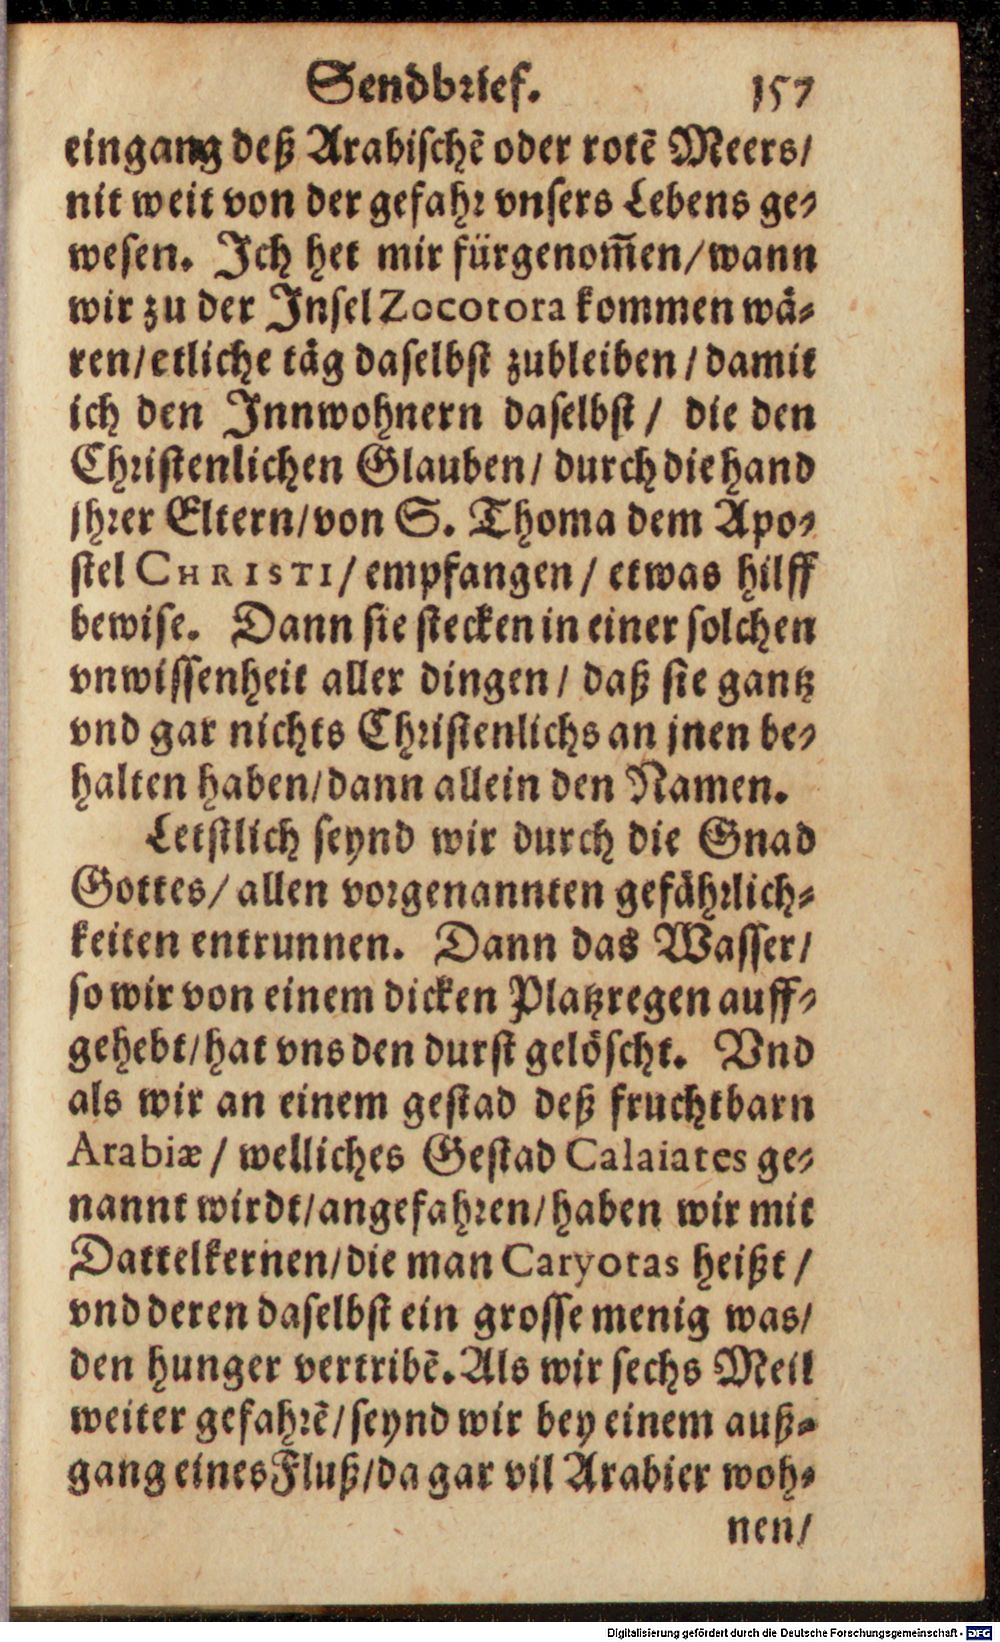 Sendbrief. 157
eingang deß Arabischẽ oder rotẽ Meers/
nit weit von der gefahr vnsers Lebens ge-
wesen. Ich het mir fürgenom̃en/wann
wir zu der Insel Zocotora kommen wä-
ren/etliche täg daselbst zubleiben/damit
ich den Innwohnern daselbst/ die den
Christenlichen Glauben/ durch die hand
jhrer Eltern/von S. Thoma dem Apo-
stel CHRISTI/ empfangen/ etwas hilff
bewise. Dann sie stecken in einer solchen
vnwissenheit aller dingen/ daß sie gantz
vnd gar nichts Christenlichs an jnen be-
halten haben/dann allein den Namen.
Letstlich seynd wir durch die Gnad
Gottes/ allen vorgenannten gefährlich-
keiten entrunnen. Dann das Wasser/
so wir von einem dicken Platzregen auff-
gehebt/hat vns den durst gelöscht. Vnd
als wir an einem gestad deß fruchtbarn
Arabiæ/ welliches Gestad Calaiates ge-
nannt wirdt/angefahren/haben wir mit
Dattelkernen/die man Caryotas heißt/
vnd deren daselbst ein grosse menig was/
den hunger vertribẽ. Als wir sechs Meil
weiter gefahrẽ/seynd wir bey einem auß-
gang eines Fluß/da gar vil Arabier woh-
nen/
Digitalisierung gefördert durch die Deutsche Forschungsgemeinschaft - DFG